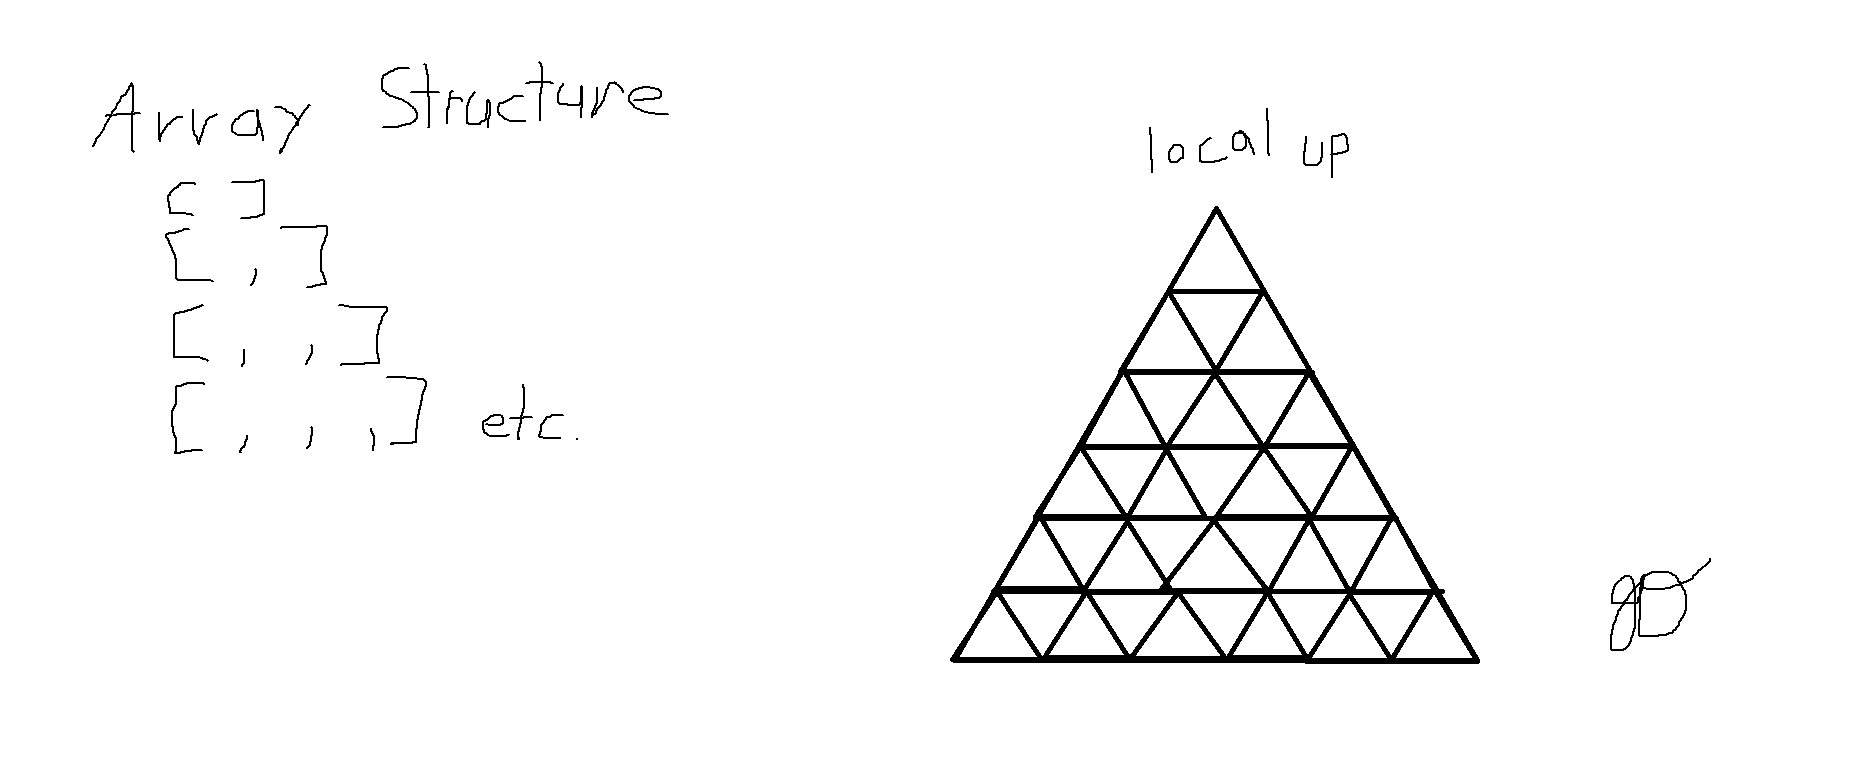 Array Structure
[ ]
[ , ]
[ , , ]
[ , , , ] etc.
local up